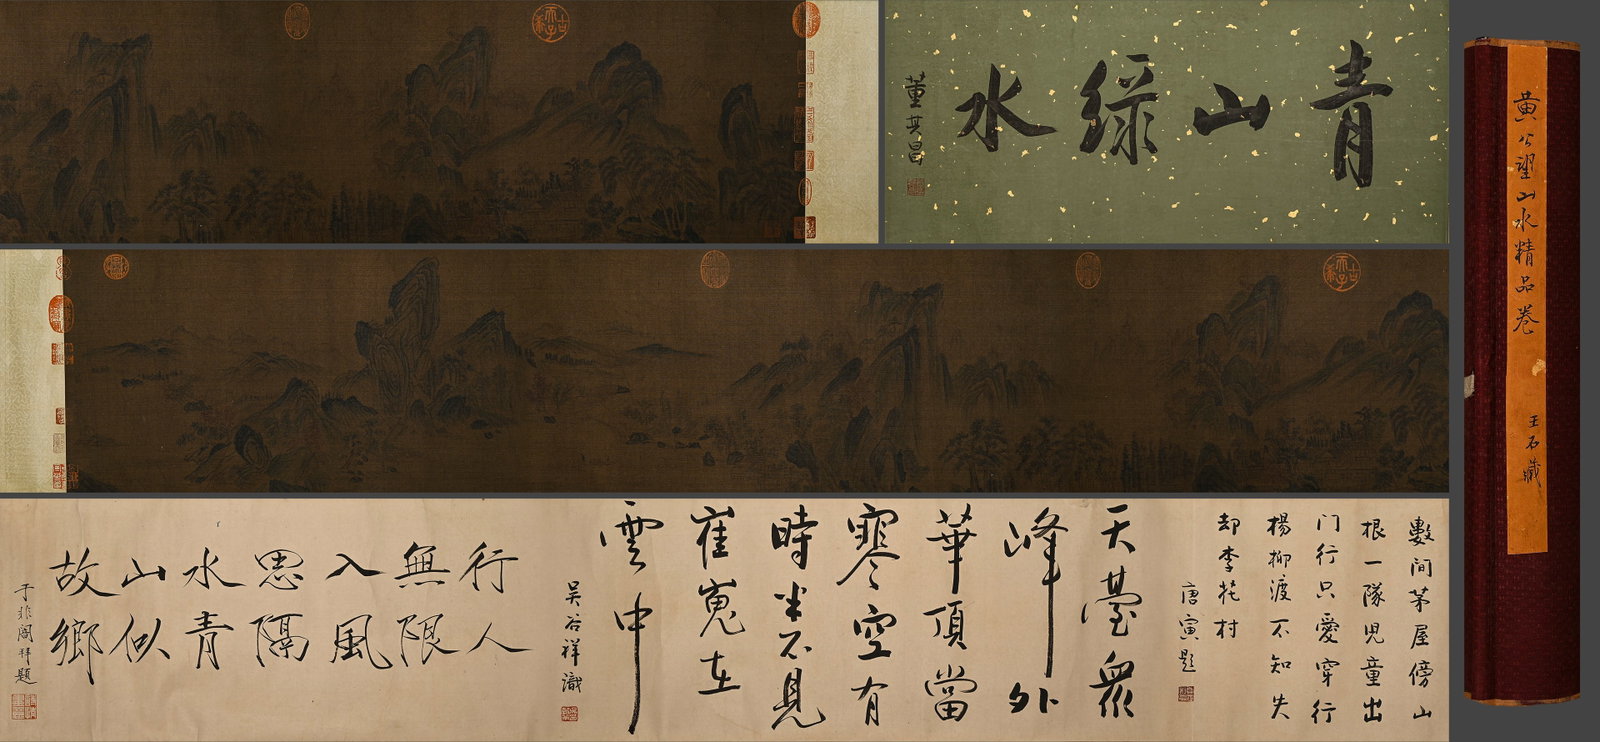 青山綠水
董其昌
黃公望山水精品卷
王石藏
數間茅屋傍山
根一隊兒童出
门行只愛穿行
楊柳渡不知失
却李花村
唐寅題
天臺眾
峰外
華頂當
寒空有
時半不見
崔嵬在
雲中
吴谷祥識
行人
無限
入風
思隔
水青
山似
故鄉
于非闇拜題